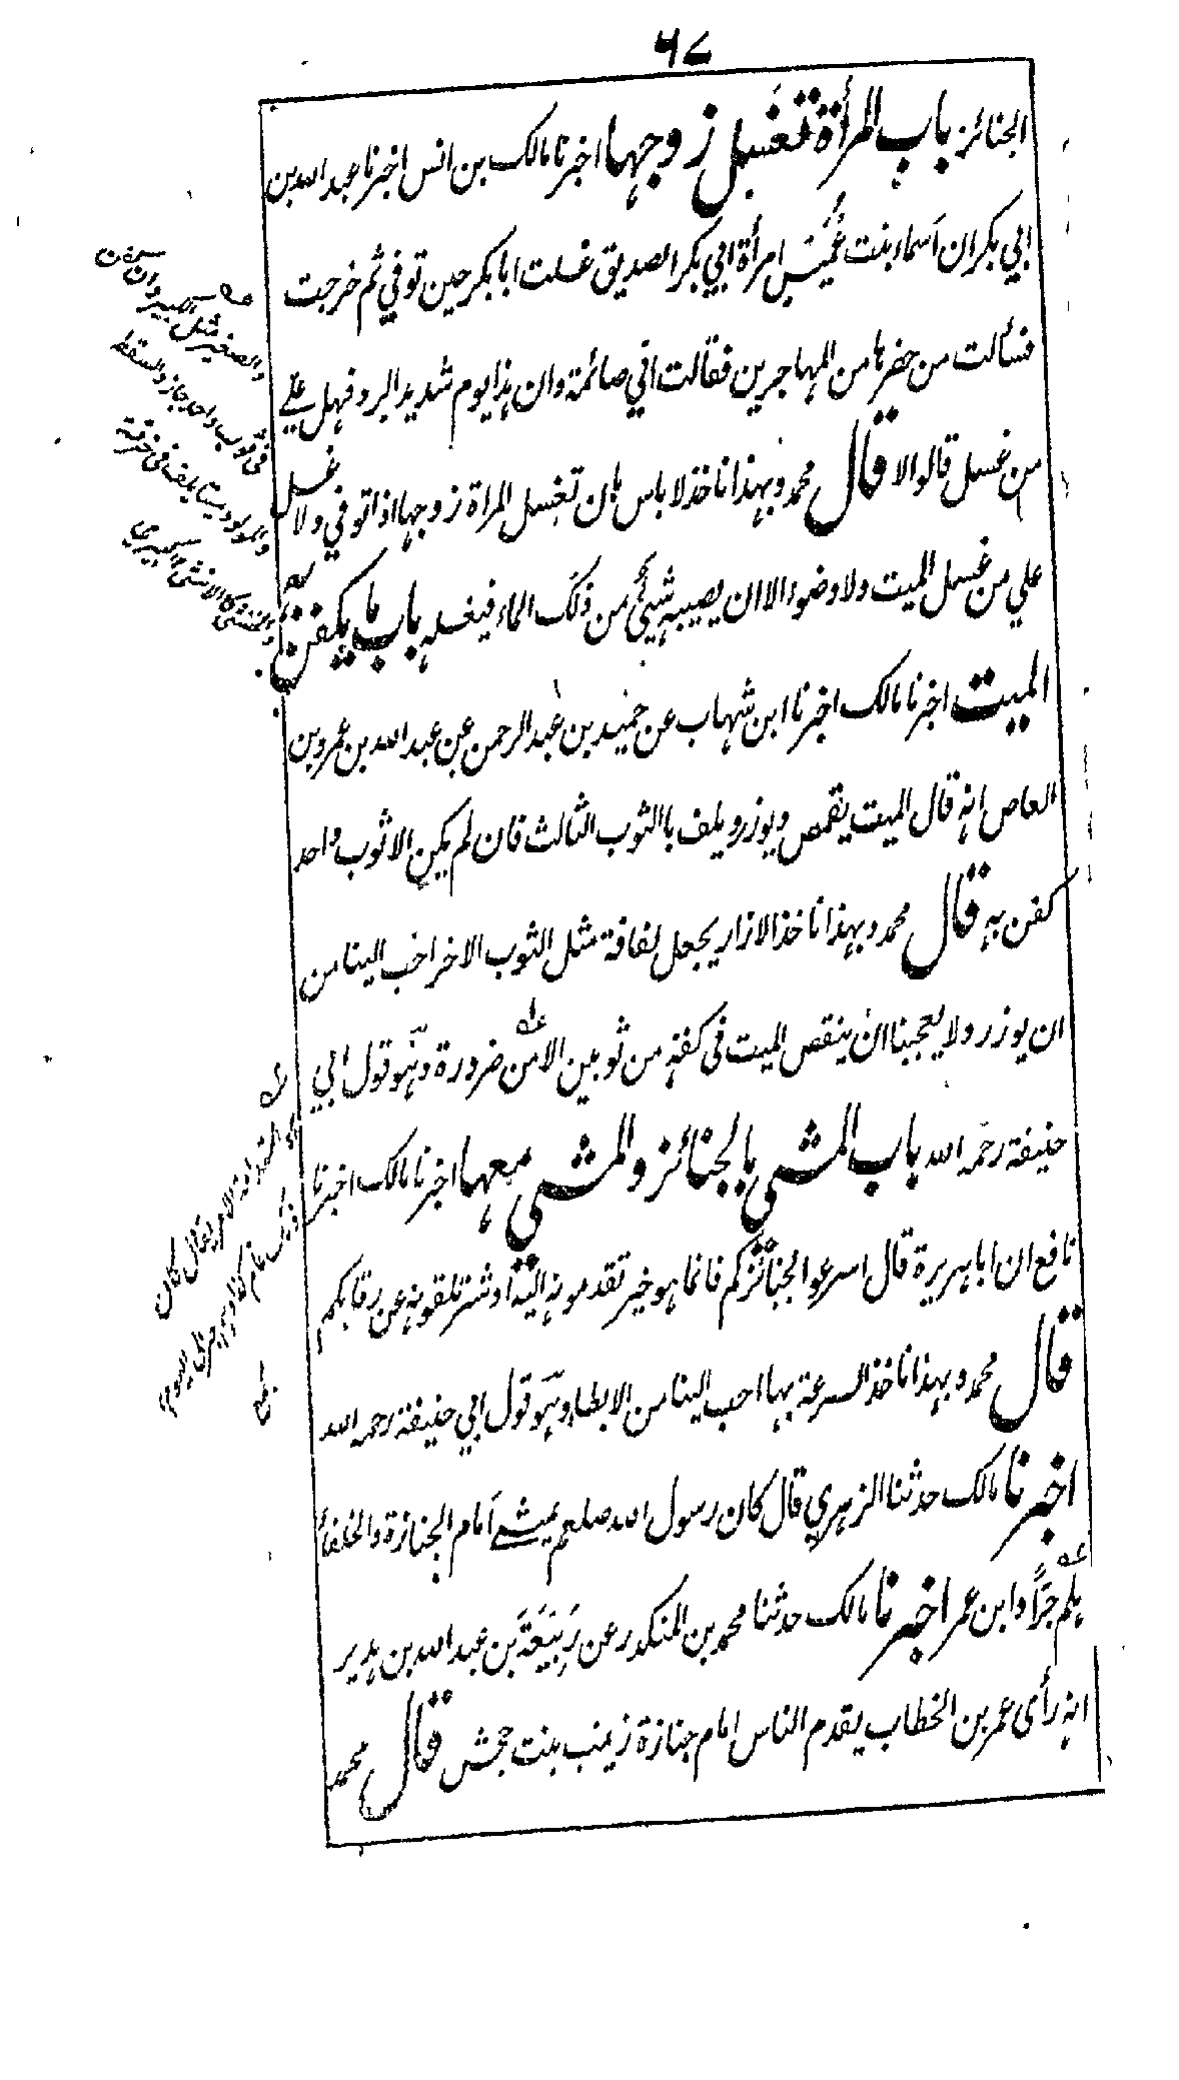 ٦٧
الجنائز باب المرأة تغسل زوجها اخبرنا مالك بن انس اخبرنا عبد الله بن
ابي بكر ان اسماء بنت عُمَيْس امرأة ابي بكر الصديق غسلت ابا بكر حين توفي ثم خرجت
فسألت من حضرها من المهاجرين فقالت اني صائمة وان هذا يوم شديد البرد فهل علي
من غسل قالوا لا قال محمد وبهذا ناخذ لا باس بان تغسل المراة زوجها اذا توفي ولا غسل
علي من غسل الميت ولا وضوء الا ان يصيبه شيئ من ذلك الماء فيغسله باب ما يكفن به
الميت اخبرنا مالك اخبرنا ابن شهاب عن حميد بن عبد الرحمن عن عبد الله بن عمرو بن
العاص انه قال الميت يقمص ويوزر ويلف باالثوب الثالث فان لم يكن الا ثوب واحد
كفن به قال محمد وبهذا ناخذ الازار يجعل لفافة مثل الثوب الاخر احب الينا من
ان يوزر ولا يعجبنا ان ينقص الميت في كفنه من ثوبين الا من ضرورة وهو قول ابي
حنيفة رحمه الله باب المشي بالجنائز والمشي معها اخبرنا مالك اخبرنا
نافع ان ابا هريرة قال اسرعوا بجنائزكم فانما هو خير تقدمونه اليه او شر تلقونه عن رقابكم
قال محمد وبهذا ناخذ السرعة بها احب الينا من الابطاء وهو قول ابي حنيفة رحمه الله
اخبرنا مالك حدثنا الزهري قال كان رسول الله صلعم يمشي امام الجنازة والخلفاء
هلم جرًّا وابن عمر اخبرنا مالك حدثنا محمد بن المنكدر عن رَبِيْعَةَ بن عبد الله بن هدير
انه رأى عمر بن الخطاب يقدم الناس امام جنازة زينب بنت جحش قال محمد
والصغير مثل الكبير وان
في ثوب واحد جاز والسقط
والمولود ميتا يلف في خرقة